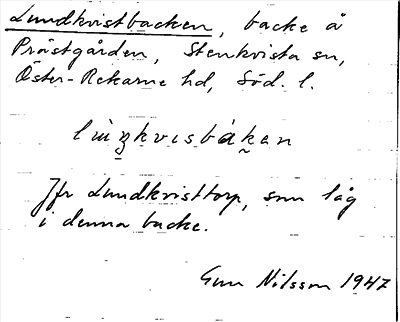 Lundkvistbacken, backe å
Prästgården, Stenkvista sn,
Öster-Rekarne hd, Söd. l.
Jfr Lundkvisttorp, som låg
i denna backe.
Gun Nilsson 1947